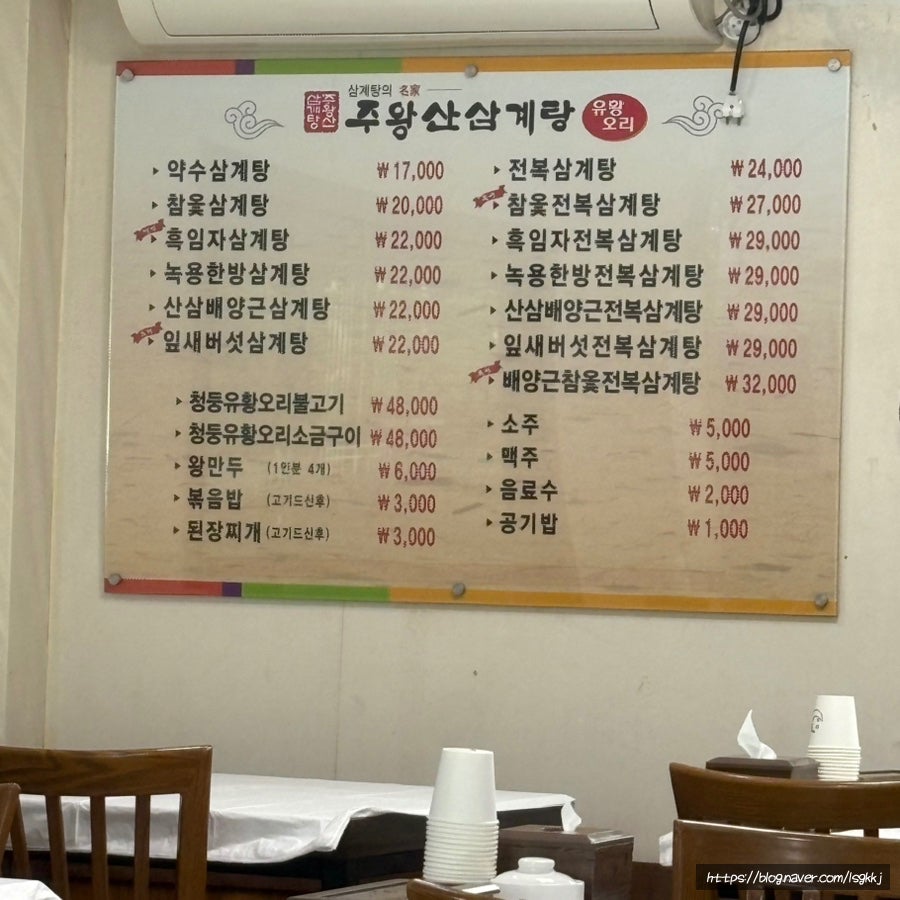 삼계탕의 名家
주왕산삼계탕
주왕산삼계탕
유황오리
약수삼계탕 ₩17,000
참옻삼계탕 ₩20,000
흑임자삼계탕 ₩22,000
녹용한방삼계탕 ₩22,000
산삼배양근삼계탕 ₩22,000
잎새버섯삼계탕 ₩22,000
청둥유황오리불고기 ₩48,000
청둥유황오리소금구이 ₩48,000
왕만두 (1인분 4개) ₩6,000
볶음밥 (고기드신후) ₩3,000
된장찌개 (고기드신후) ₩3,000
전복삼계탕 ₩24,000
참옻전복삼계탕 ₩27,000
흑임자전복삼계탕 ₩29,000
녹용한방전복삼계탕 ₩29,000
산삼배양근전복삼계탕 ₩29,000
잎새버섯전복삼계탕 ₩29,000
배양근참옻전복삼계탕 ₩32,000
소주 ₩5,000
맥주 ₩5,000
음료수 ₩2,000
공기밥 ₩1,000
https://blog.naver.com/lsgkkj